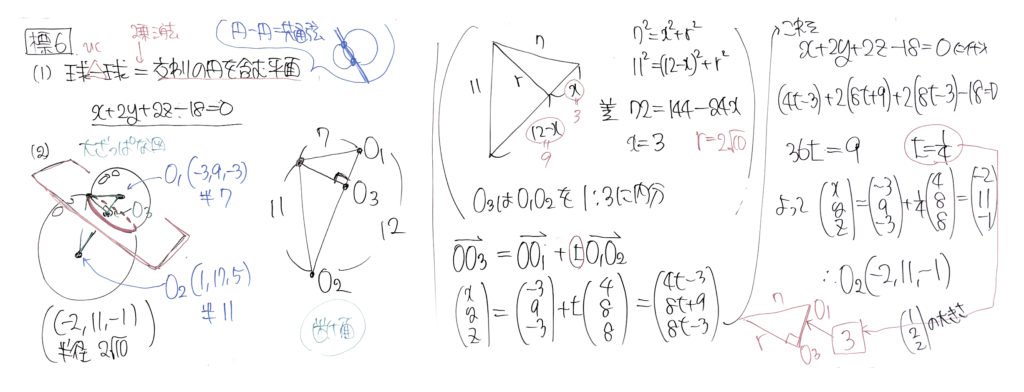 標6
(1) 球−球 = 交わりの円を含む平面
(円−円=共通弦)
x+2y+2z−18=0
(2) 大ざっぱな図
O₁(−3,9,−3)
半7
O₃
O₂(1,17,5)
半11
(−2,11,−1)
半径 2√10
7
O₁
O₃
11
12
O₂
7
11
r
x
3
12−x
9
7²=x²+r²
11²=(12−x)²+r²
差 72=144−24x
x=3 r=2√10
O₃はO₁O₂を1:3に内分
OO₃=OO₁+tO₁O₂
(x y z)=(−3 9 −3)+t(4 8 8)=(4t−3 8t+9 8t−3)
これを
x+2y+2z−18=0に代入
(4t−3)+2(8t+9)+2(8t−3)−18=0
36t=9 t=1/4
よって (x y z)=(−3 9 −3)+1/4(4 8 8)=(−2 11 −1)
∴O₂(−2,11,−1)
7
O₁
r
O₃
3
(1 2 2)の大きさ